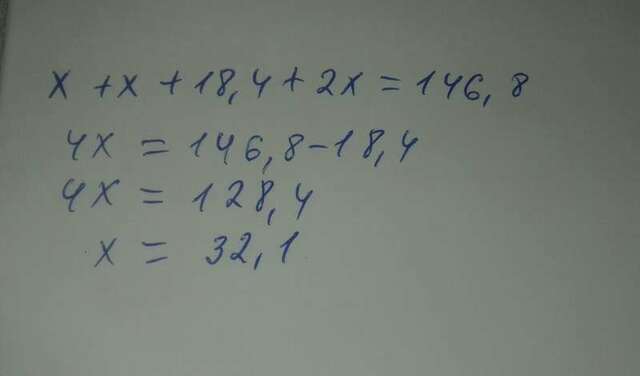 x + x + 18,4 + 2x = 146,8
4x = 146,8 - 18,4
4x = 128,4
x = 32,1